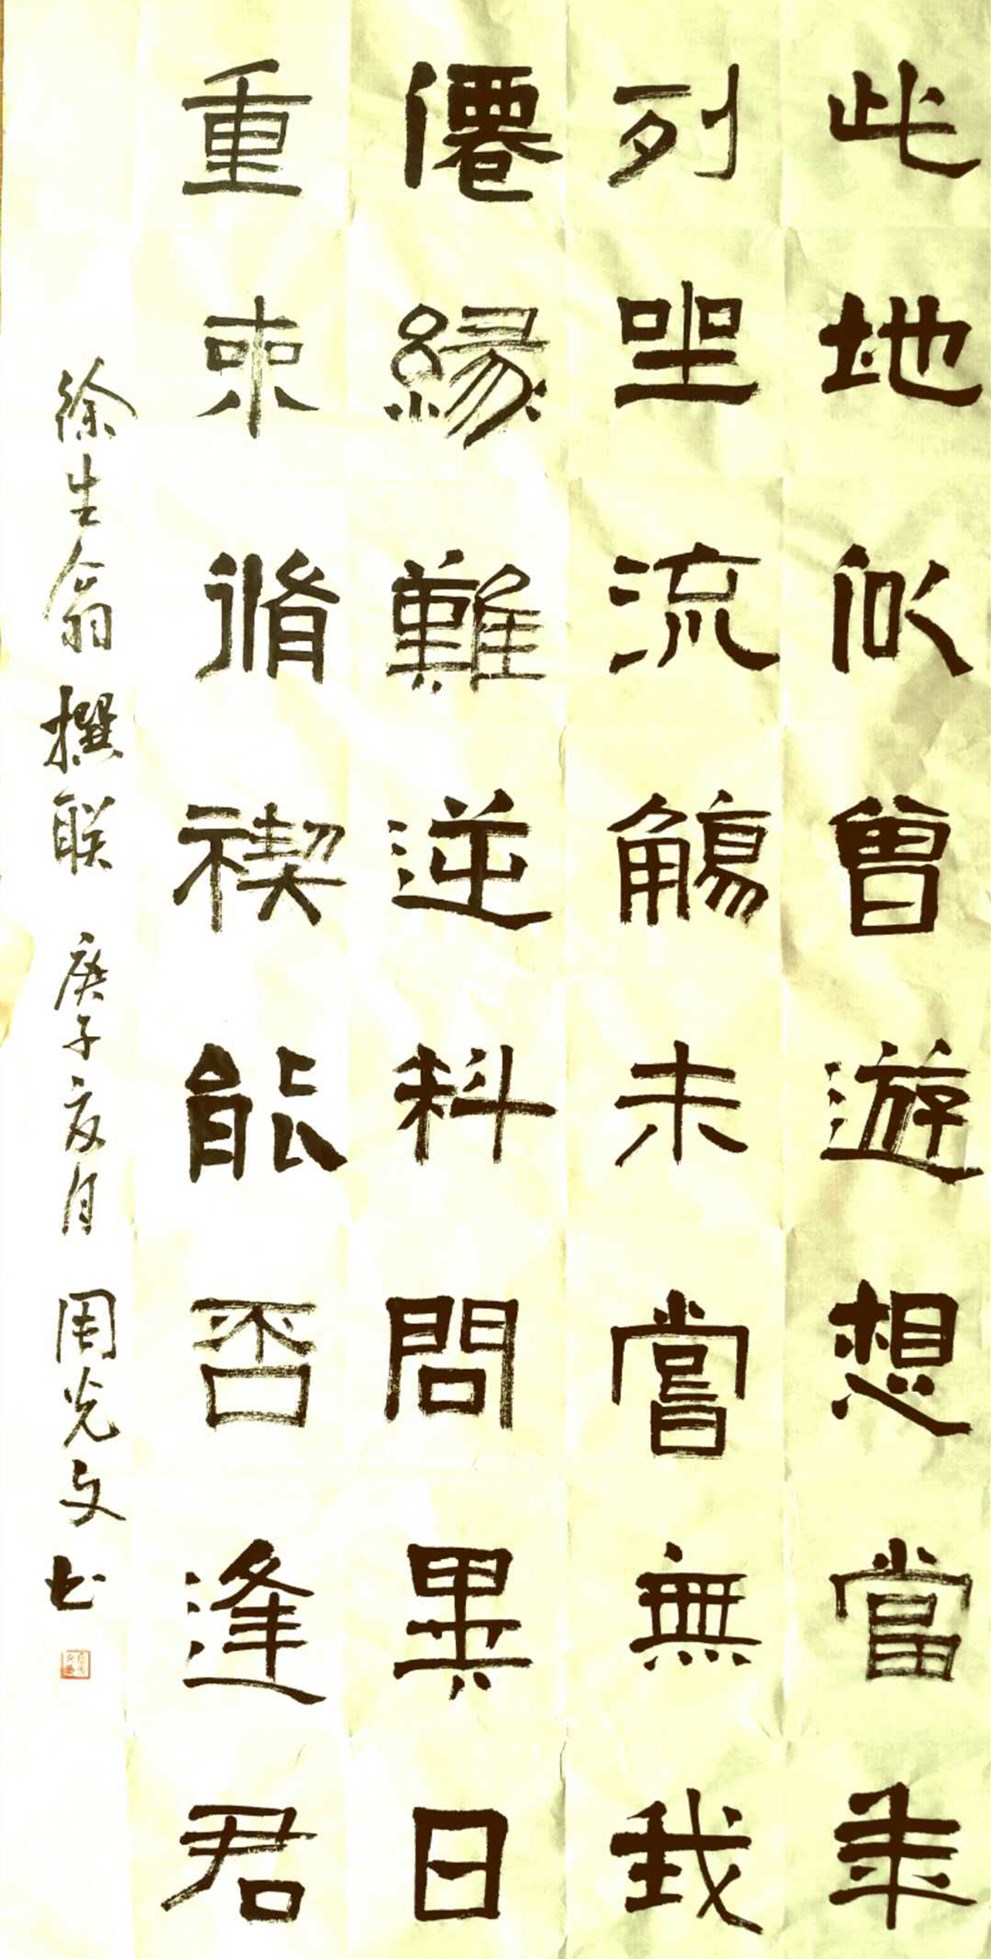 此地似曾遊想當年
列坐流觴未嘗無我
僊緣難逆料問異日
重來脩禊能否逢君
徐生翁撰联 庚子夏月 周光文书